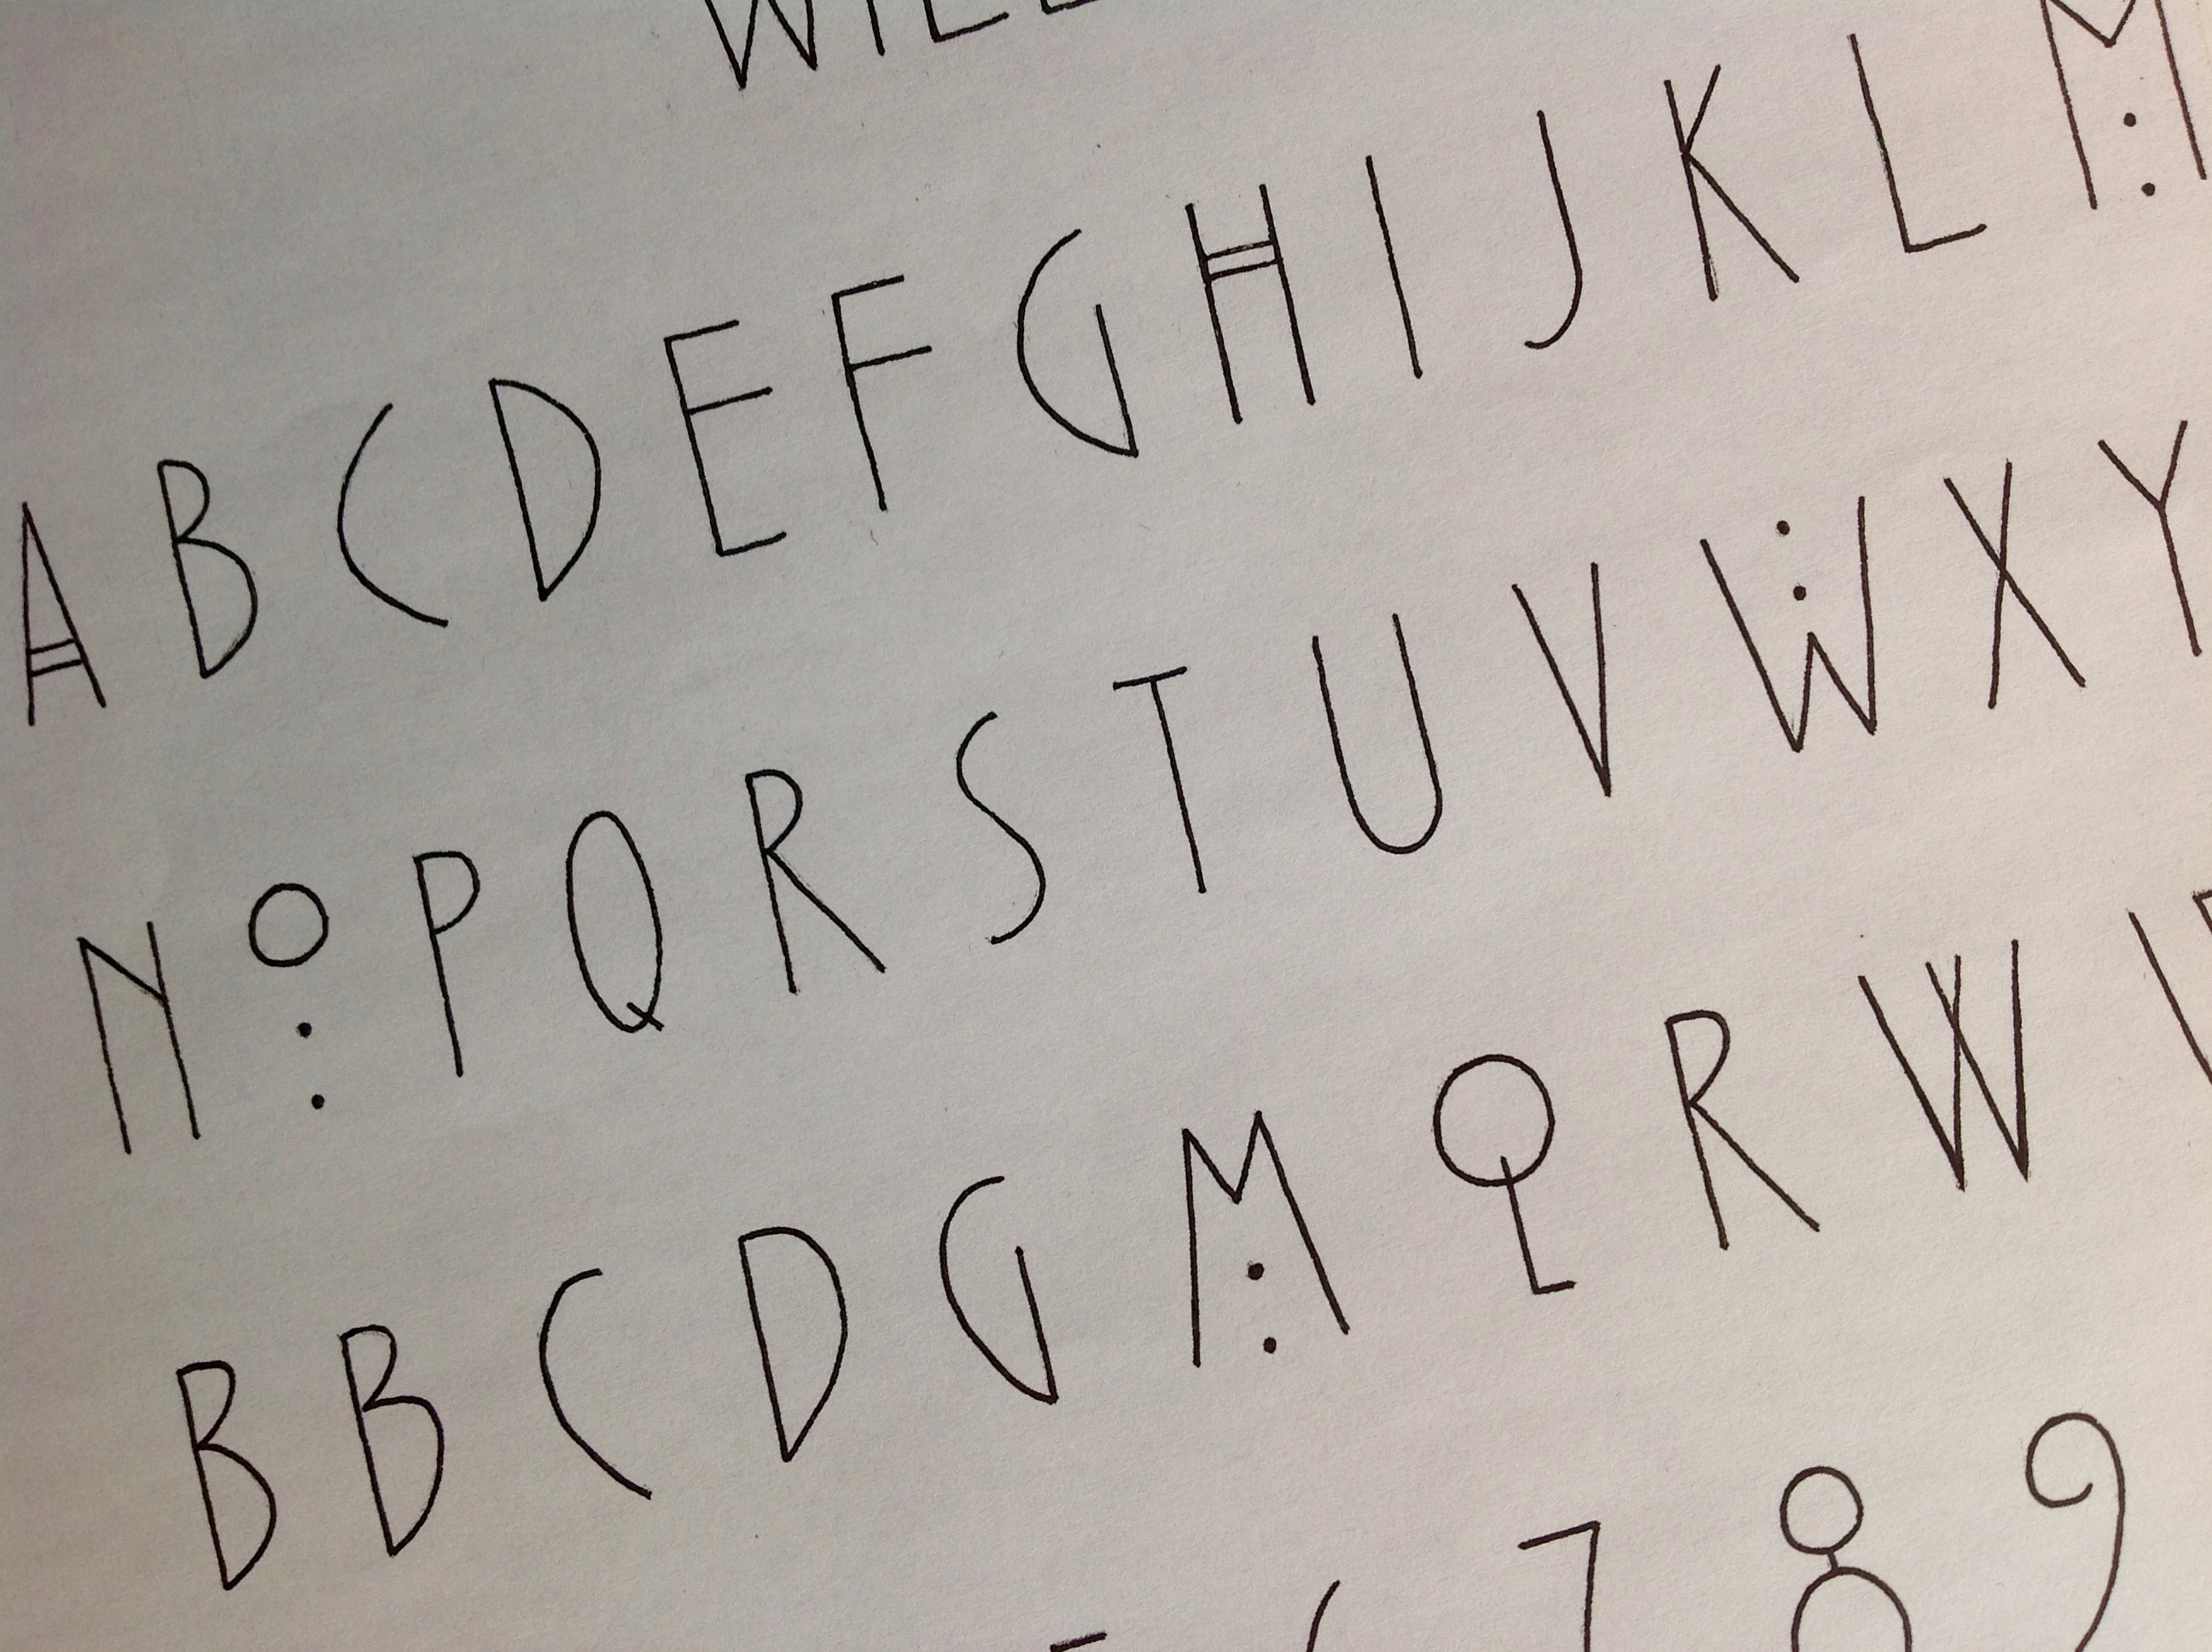 WILL
A B C D E F G H I J K L M
N O P Q R S T U V W X Y
B B C D G M Q R W
7 8 9